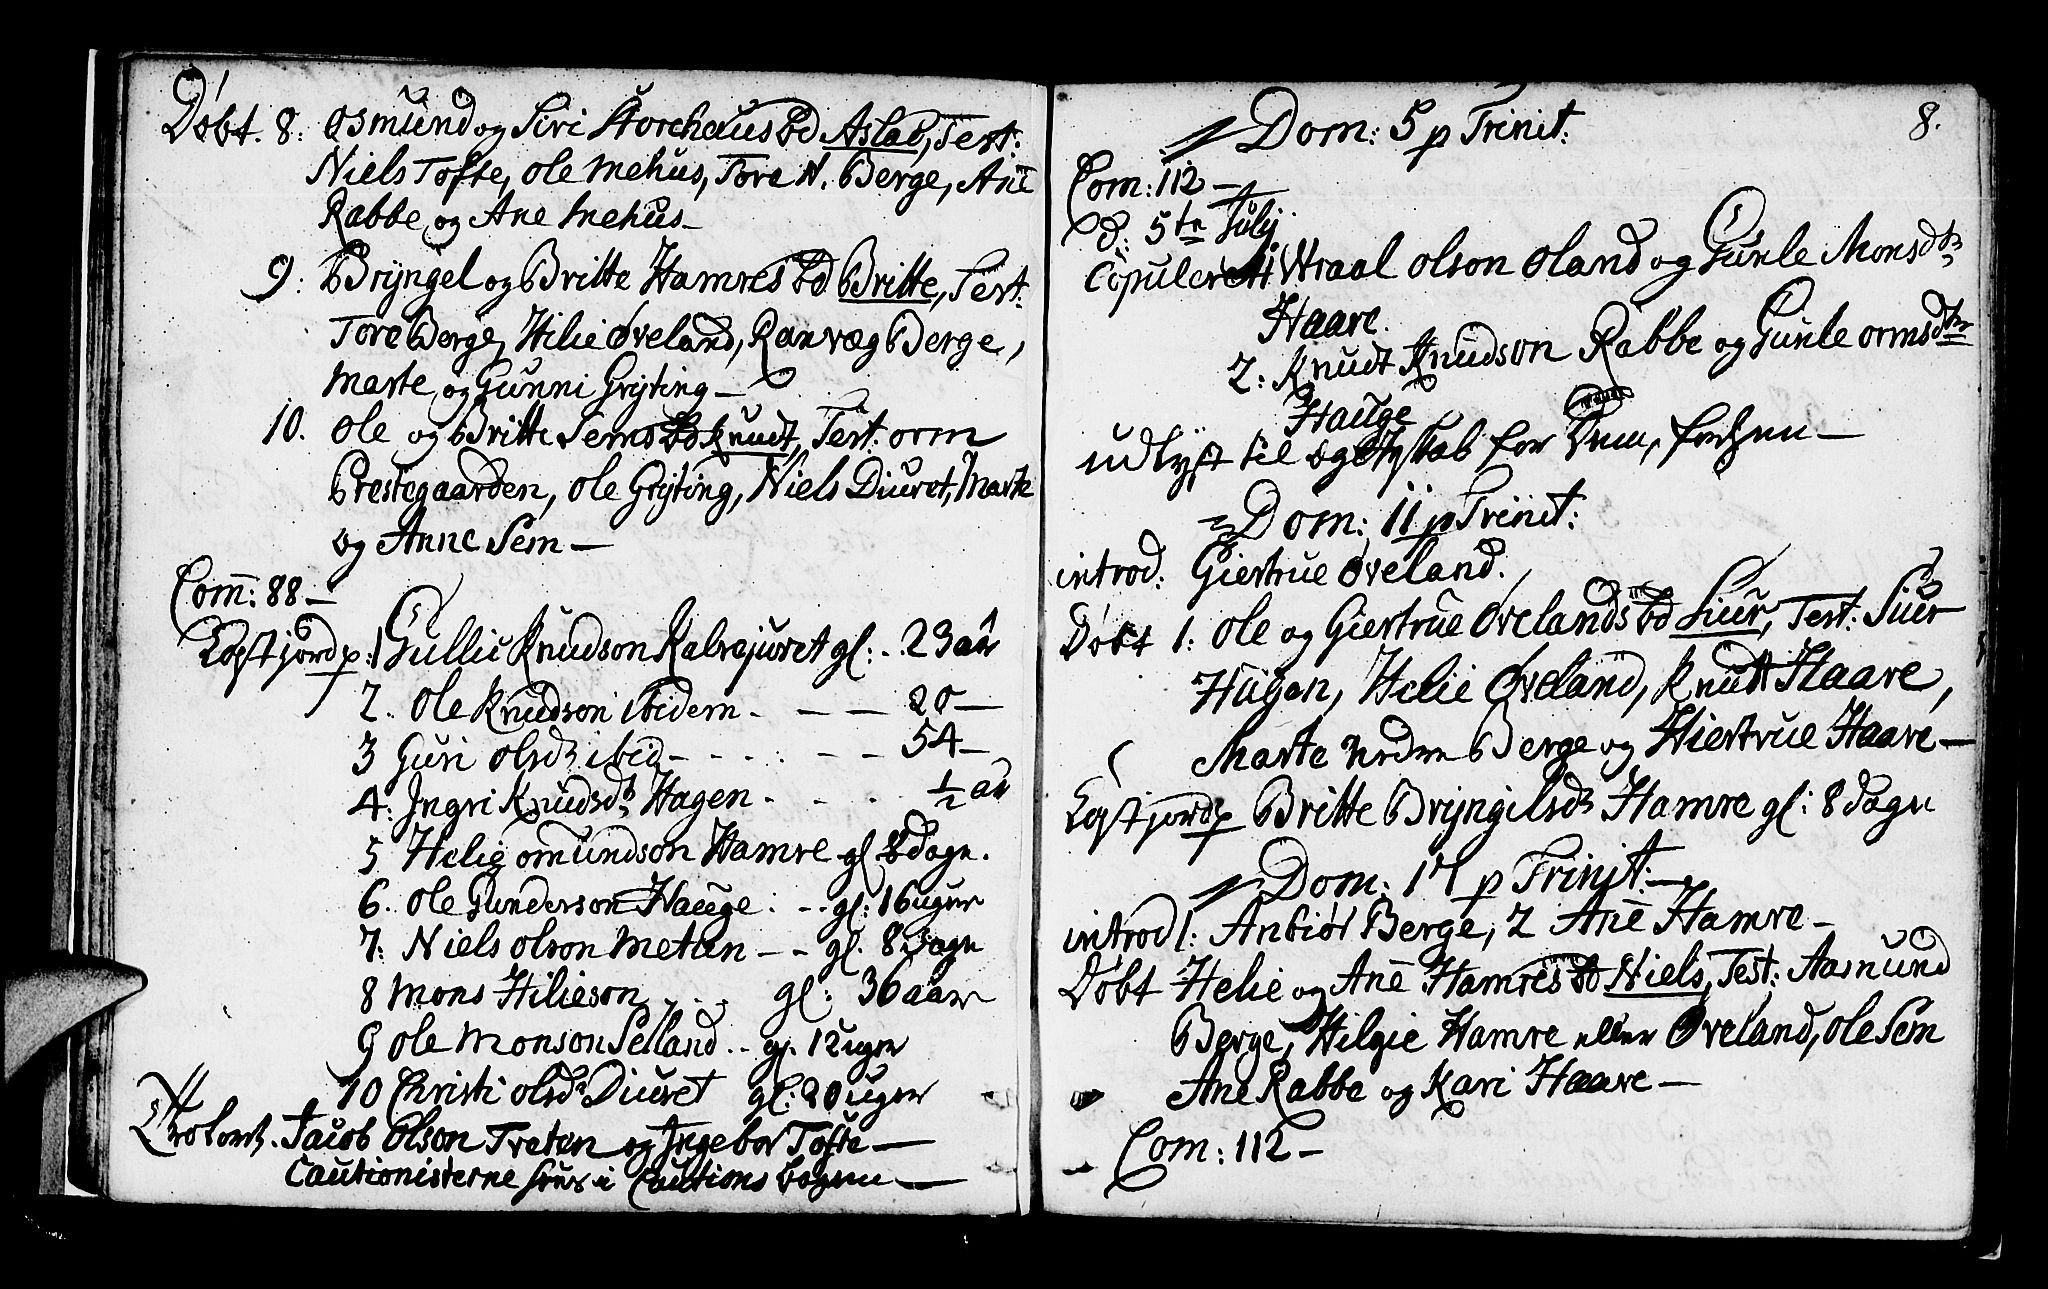 Døbt. 8: Osmund og Siri Storehaus bd Aslab, Test:
Niels Tofte, Ole Mehus, Tore N. Berge, Ane
Rabbe og Ane Mehus –
9: Bryngel og Britte Hamres bd Britte, Test:
Tore Berge, Hilie Øveland, Ranvæg Berge,
Marte og Gunni Gryting –
10. Ole og Britte Sems bd Knudt, Test: Orm
Prestegaarden, Ole Gryting, Niels Diuret, Marte
og Anne Sem –
Com: 88 –
1 Gullic Knudson Kalvejuret gl: . 23 aar
2. Ole Knudson ibidem . – – – 20 –
3 Guri Olsdr ibid – – – – 54 –
4: Ingri Knudsdr Hagen . . . . 1/2 aar
5 Helie Omundson Hamre gl 8 dage.
6. Ole Gunderson Hauge . – . gl: 16 uger
7: Niels Olson Metun – – gl. 8 dage
8 Mons Hilieson . . . gl: 36 aar
9 Ole Monson Selland . . gl. 12 uger
10 Christi Olsdr Diuret gl: 20 uger
Trolov. Jacob Olson Tveten og Ingebor Tofte –
Cautionisterne findes i Cautions bogen –
8.
Dom: 5 p Trinit:
Com: 112 –
d: 5te July
Copuleret 1 Wraal Olson Oland og Gunle Monsdtr
Haare.
2: Knudt Knudson Rabbe og Gunle Ormsdtr
Hauge
udlyst til ogteskab for Dem,
Dom: 11 p Trinit:
introd: Giertrue Øveland.
Døbt 1: Ole og Giertrue Øvelands bd Siur, Test: Siur
Hugen, Helie Øveland, Knudt Haare,
Marte Nedre Berge og Hiertrue Haare –
Britte Bryngelsdr Hamre gl: 8 dage
Dom: 17 p Trinit: –
introd 1: Anbiør Berge, 2 Ane Hamre –
Døbt Helie og Ane Hamres bd Niels, Test: Aasmund
Berge, Hilgie Hamre eller Øveland, Ole Sem
Ane Rabbe og Kari Haare –
Com: 112 –